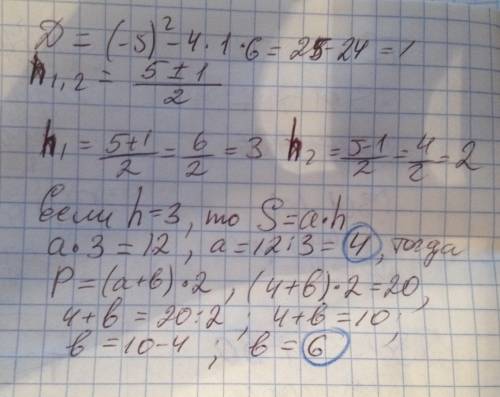 D = (-5)² - 4 · 1 · 6 = 25 - 24 = 1
h₁,₂ = (5 ± 1)/2
h₁ = (5+1)/2 = 6/2 = 3   h₂ = (5-1)/2 = 4/2 = 2
если h = 3, то S = a · h
a · 3 = 12, a = 12 : 3 = 4, тогда
P = (a + b) · 2, (4 + b) · 2 = 20,
4 + b = 20 : 2 ; 4 + b = 10 ;
b = 10 - 4 ; b = 6